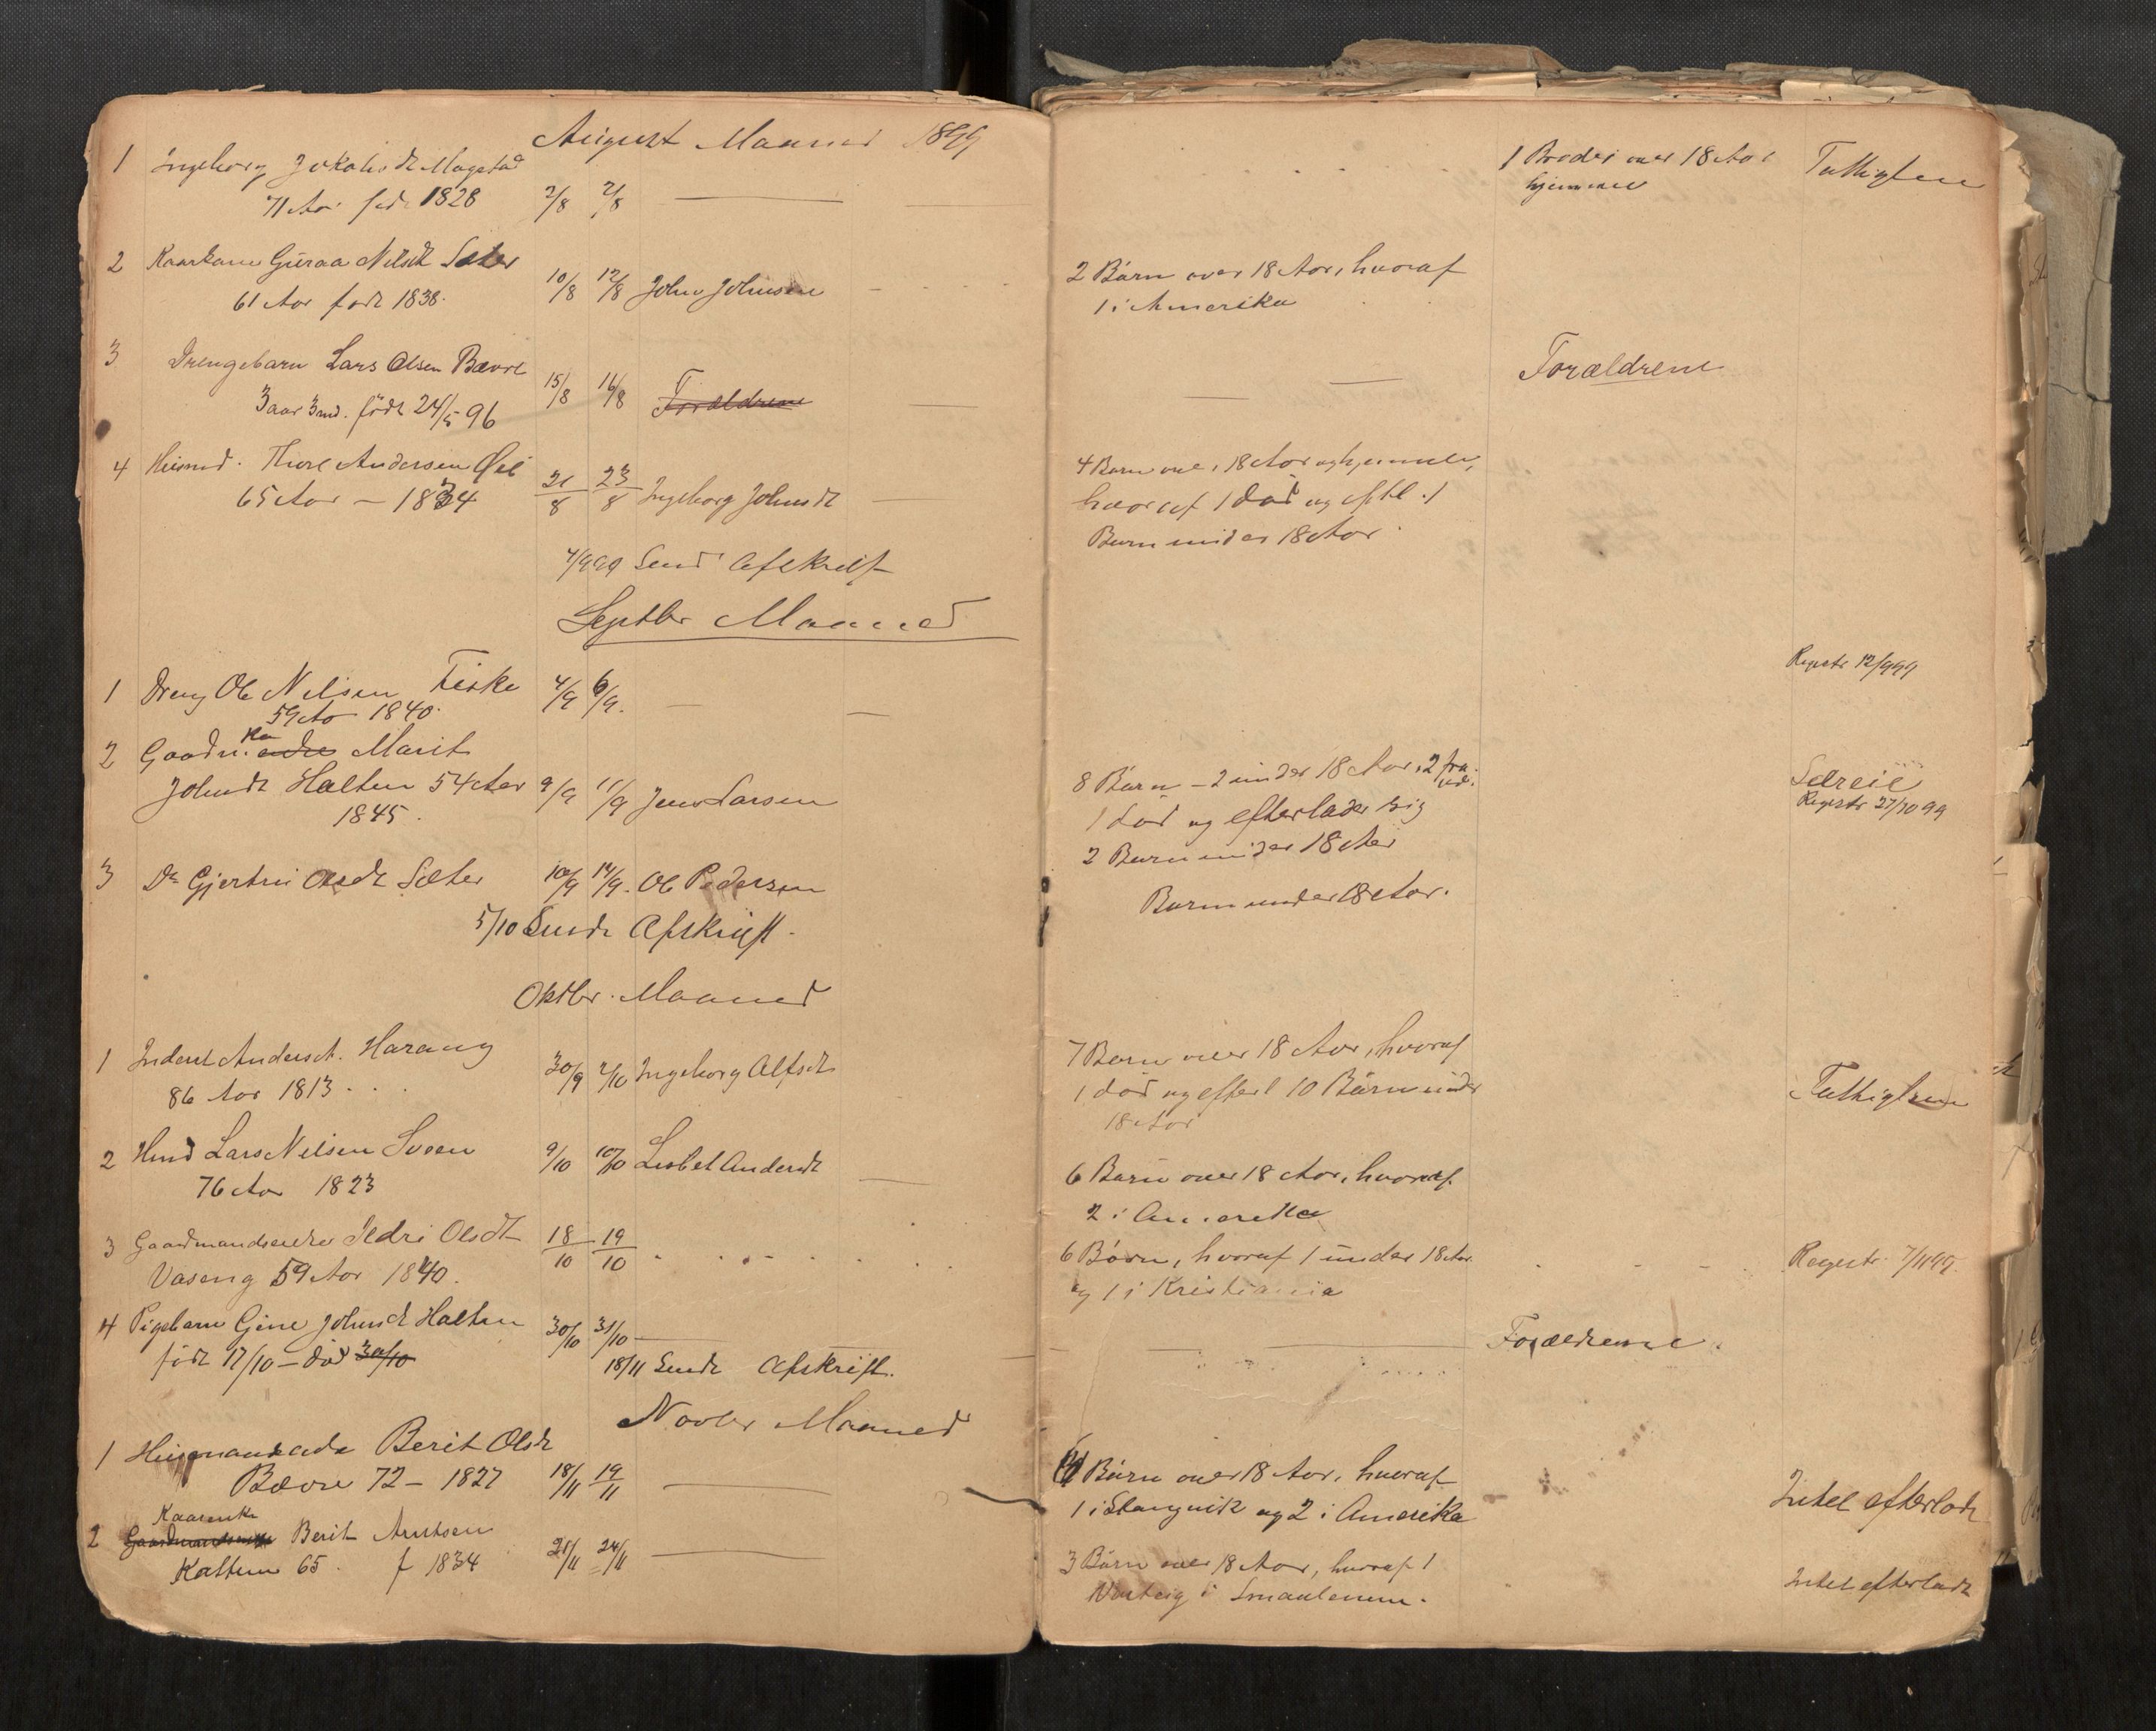 August Maaned 1899
1 Ingeborg Jakobsdt Magstad
71 Aar født 1828 2/8 7/8
1 Broder over 18 Aar
hjemme
Fattiglem
2 Kaarkone Guraa Nilsdt Sæter
61 Aar født 1838. 10/8 12/8 John Johnsen
2 Børn over 18 Aar, hvoraf
1 i Amerika
3 Drengebarn Lars Olsen Bævre
3 aar 3 md. født 24/5 96 15/8 16/8 Forældrene
Forældrene
4 Husmd. Thore Andersen Øie
65 Aar – 1834 21/8 23/8 Ingeborg Johnsdt
4 Børn over 18 Aar og hjemme,
hvoraf 1 død og eftl. 1
Barn under 18 Aar.
7/9 99 Send Afskrift
Septbr Maaned
1 Dreng Ole Nilsen Fiske 4/9 6/9.
59 Aar 1840.
Registr 12/9 99
2 Gaardm. enke Ka Marit
Johnsdt Halten 54 Aar 9/9 11/9 Jens Larsen
1845.
8 Børn – 2 under 18 Aar, 2 fra
1 død og efterlader sig
2 Barn under 18 Aar
Selveie
Registr 27/10 99
3 Do Gjertru Olsdt Sæter 10/9 14/9. Ole Pedersen
Barn under 18 Aar.
5/10 Sendt Afskrift.
Oktbr. Maaned
1 Inderst Andersdt. Harang
86 Aar 1813. 30/9 2/10 Ingeborg Alfsdt
7 Børn over 18 Aar, hvoraf
1 død og efterl 10 Børn under
18 Aar
Fattiglem
2 Hmd Lars Nilsen Sveen
76 Aar 1823 9/10 10/10 Lisbet Andersdt
6 Børn over 18 Aar, hvoraf
2 i Amerika
3 Gaardmandsenke Ildri Olsdt 18/10 19/10
Vaseng 59 Aar 1840.
6 Børn, hvoraf 1 under 18 Aar
og 1 i Kristiania
Registr. 7/11 99.
4 Pigebarn Gine Johnsdt Halten 30/10 31/10
født 17/10 – død 30/10
Forældrene.
18/11 Sendt Afskrift.
Novbr Maaned
1 Husmandsenke Berit Olsdt
Bævre 72 – 1827 18/11 19/11
Børn over 18 Aar, hvoraf
1 i Stangvik og 2 i Amerika
Intet efterladt
Kaarenke
2 Gaardmandsenke Berit Arntsen
Kaltun 65. f 1834 21/11 24/11
3 Børn over 18 Aar, hvoraf 1
Varteig i Smaalenene.
Intet efterladt